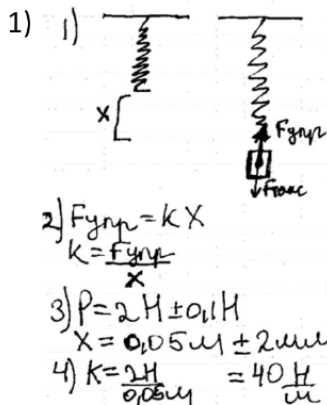 1) 1)
x
Fупр
Fтяж
2) Fупр = kx
k = Fупр/x
3) P = 2 Н ± 0,1 Н
x = 0,05 м ± 2 мм
4) k = 2Н/0,05м = 40 Н/м